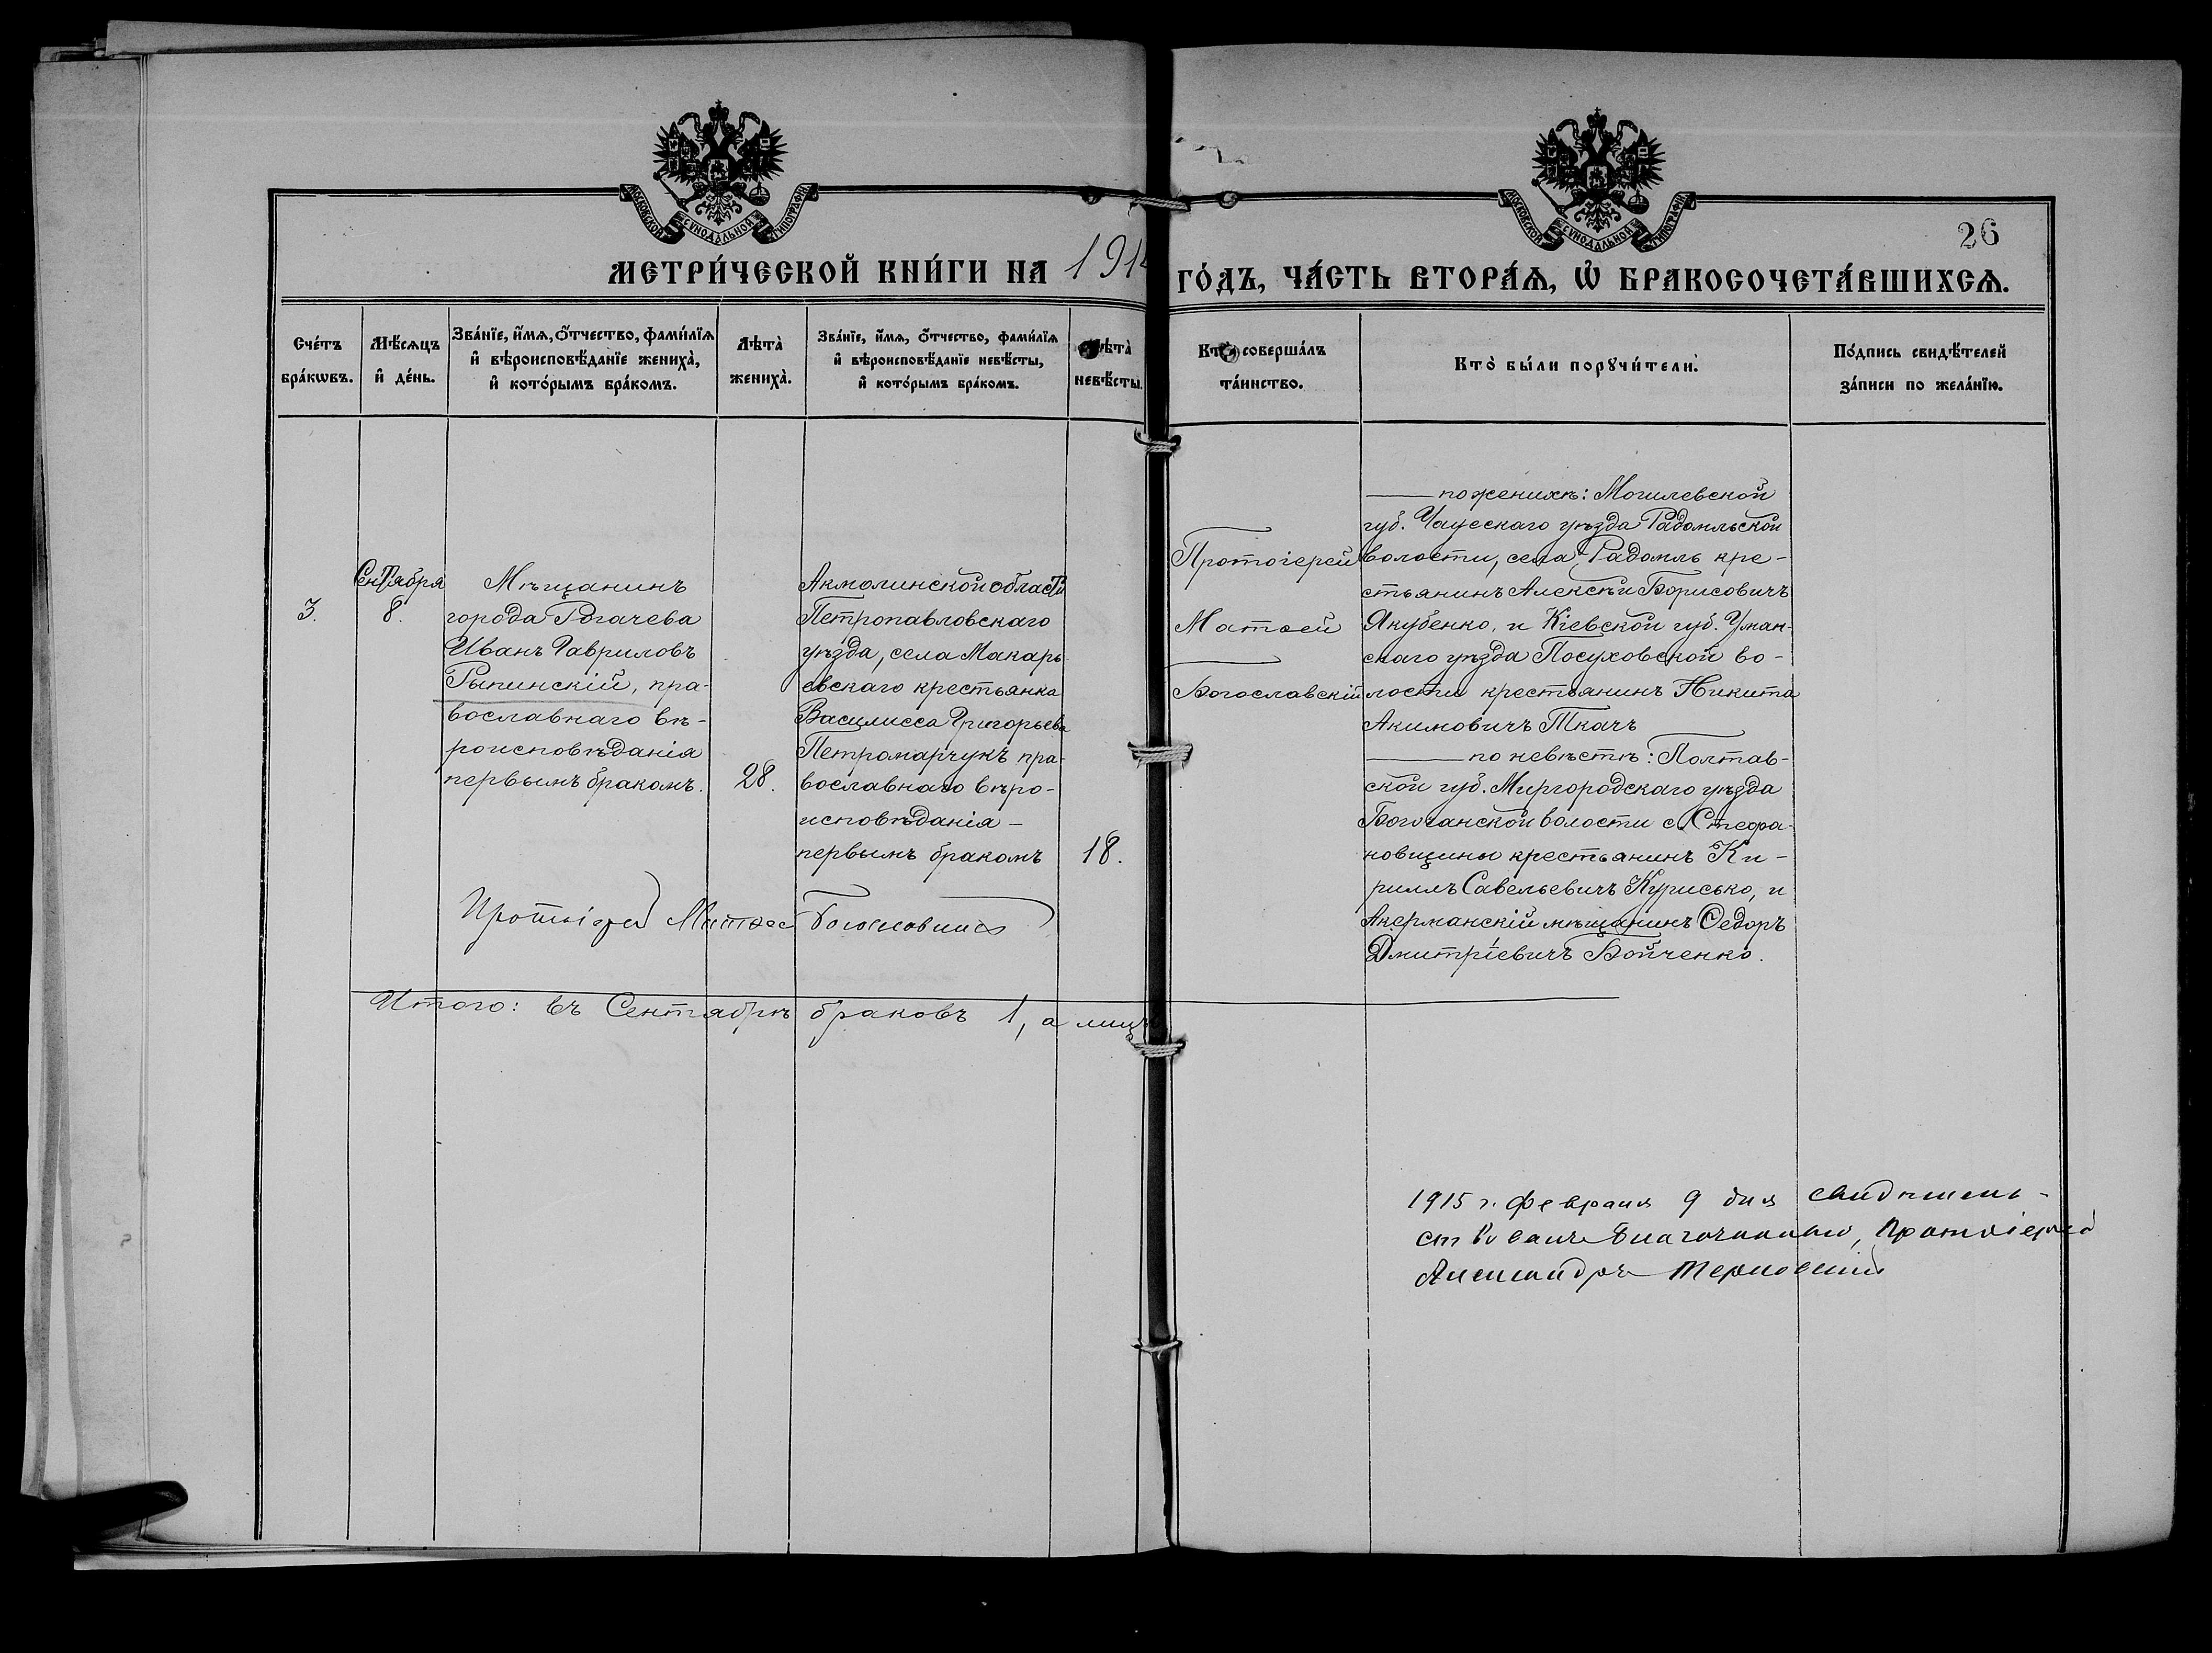 МОСКОВСКОЙ СѴНОДАЛЬНОЙ ТИПОГРАФІИ
МОСКОВСКОЙ СѴНОДАЛЬНОЙ ТИПОГРАФІИ
26
МЕТРИ́ЧЕСКОЙ КНИ́ГИ НА 1914
ГО́ДЪ, ЧА́СТЬ ВТОРА́Ѧ, Ѡ҆ БРАКОСОЧЕТА́ВШИХСѦ.
Сче́тъ
бра́кѡвъ.
Мѣ́сѧцъ
и҆ де́нь.
Зва́нїе, и҆́мѧ, ѻ҆́тчество, фами́лїѧ
и҆ вѣроисповѣ́данїе жениха̀,
и҆ кото́рымъ бра́комъ.
Лѣта̀
жениха̀.
Зва́нїе, и҆́мѧ, ѻ҆́тчество, фами́лїѧ
и҆ вѣроисповѣ́данїе невѣ́сты,
и҆ кото́рымъ бра́комъ.
Лѣта̀
невѣ́сты.
Кто̀ соверша́лъ
та́инство.
Кто̀ бы́ли порꙋчи́тели.
По́дпись свидѣ́телей
за́писи по жела́нїю.
3.
Сентября
8.
Мѣщанинъ
города Рогачева
Иванъ Гавриловъ
Рыпинскій, пра-
вославнаго вѣ-
роисповѣданія
первымъ бракомъ.
28.
Акмолинской области
Петропавловскаго
уѣзда, села Макарь
евскаго крестьянка
Василисса Григорьева
Петромарчукъ пра-
вославнаго вѣро-
исповѣданія -
первымъ бракомъ
18.
Протоіерей
Матѳей
Богославскій
по женихѣ: Могилевской
губ. Чаусскаго уѣзда Радомльской
волости, села Радомль кре-
стьянинъ Алексѣй Борисовичъ
Якубенко, и Кіевской губ. Уман-
скаго уѣзда Посуховской во-
лости крестьянинъ Никита
Акимовичъ Ткачъ
по невѣстѣ: Полтав-
ской губ. Миргородскаго уѣзда
волости с. Стефа-
новщины крестьянинъ Ки-
риллъ Савельевичъ Курисько, и
Акерманскій мѣщанинъ Ѳедоръ
Дмитріевичъ Бойченко.
Протоіерей Матѳей Богословскій
Итого: въ Сентябрѣ браковъ 1, а лицъ
1915 г. февраля 9 дня свидѣтель-
ствовалъ Благочинный, Протоіерей
Александръ Терновскій